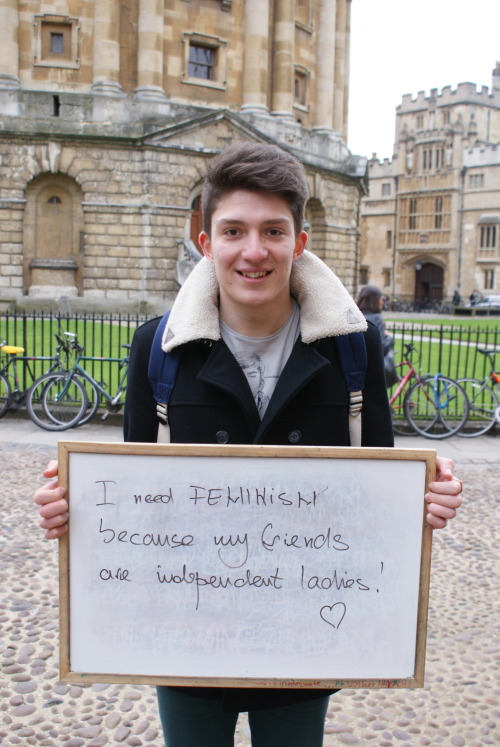 I need FEMINISM
because my friends
are independent ladies!
♡